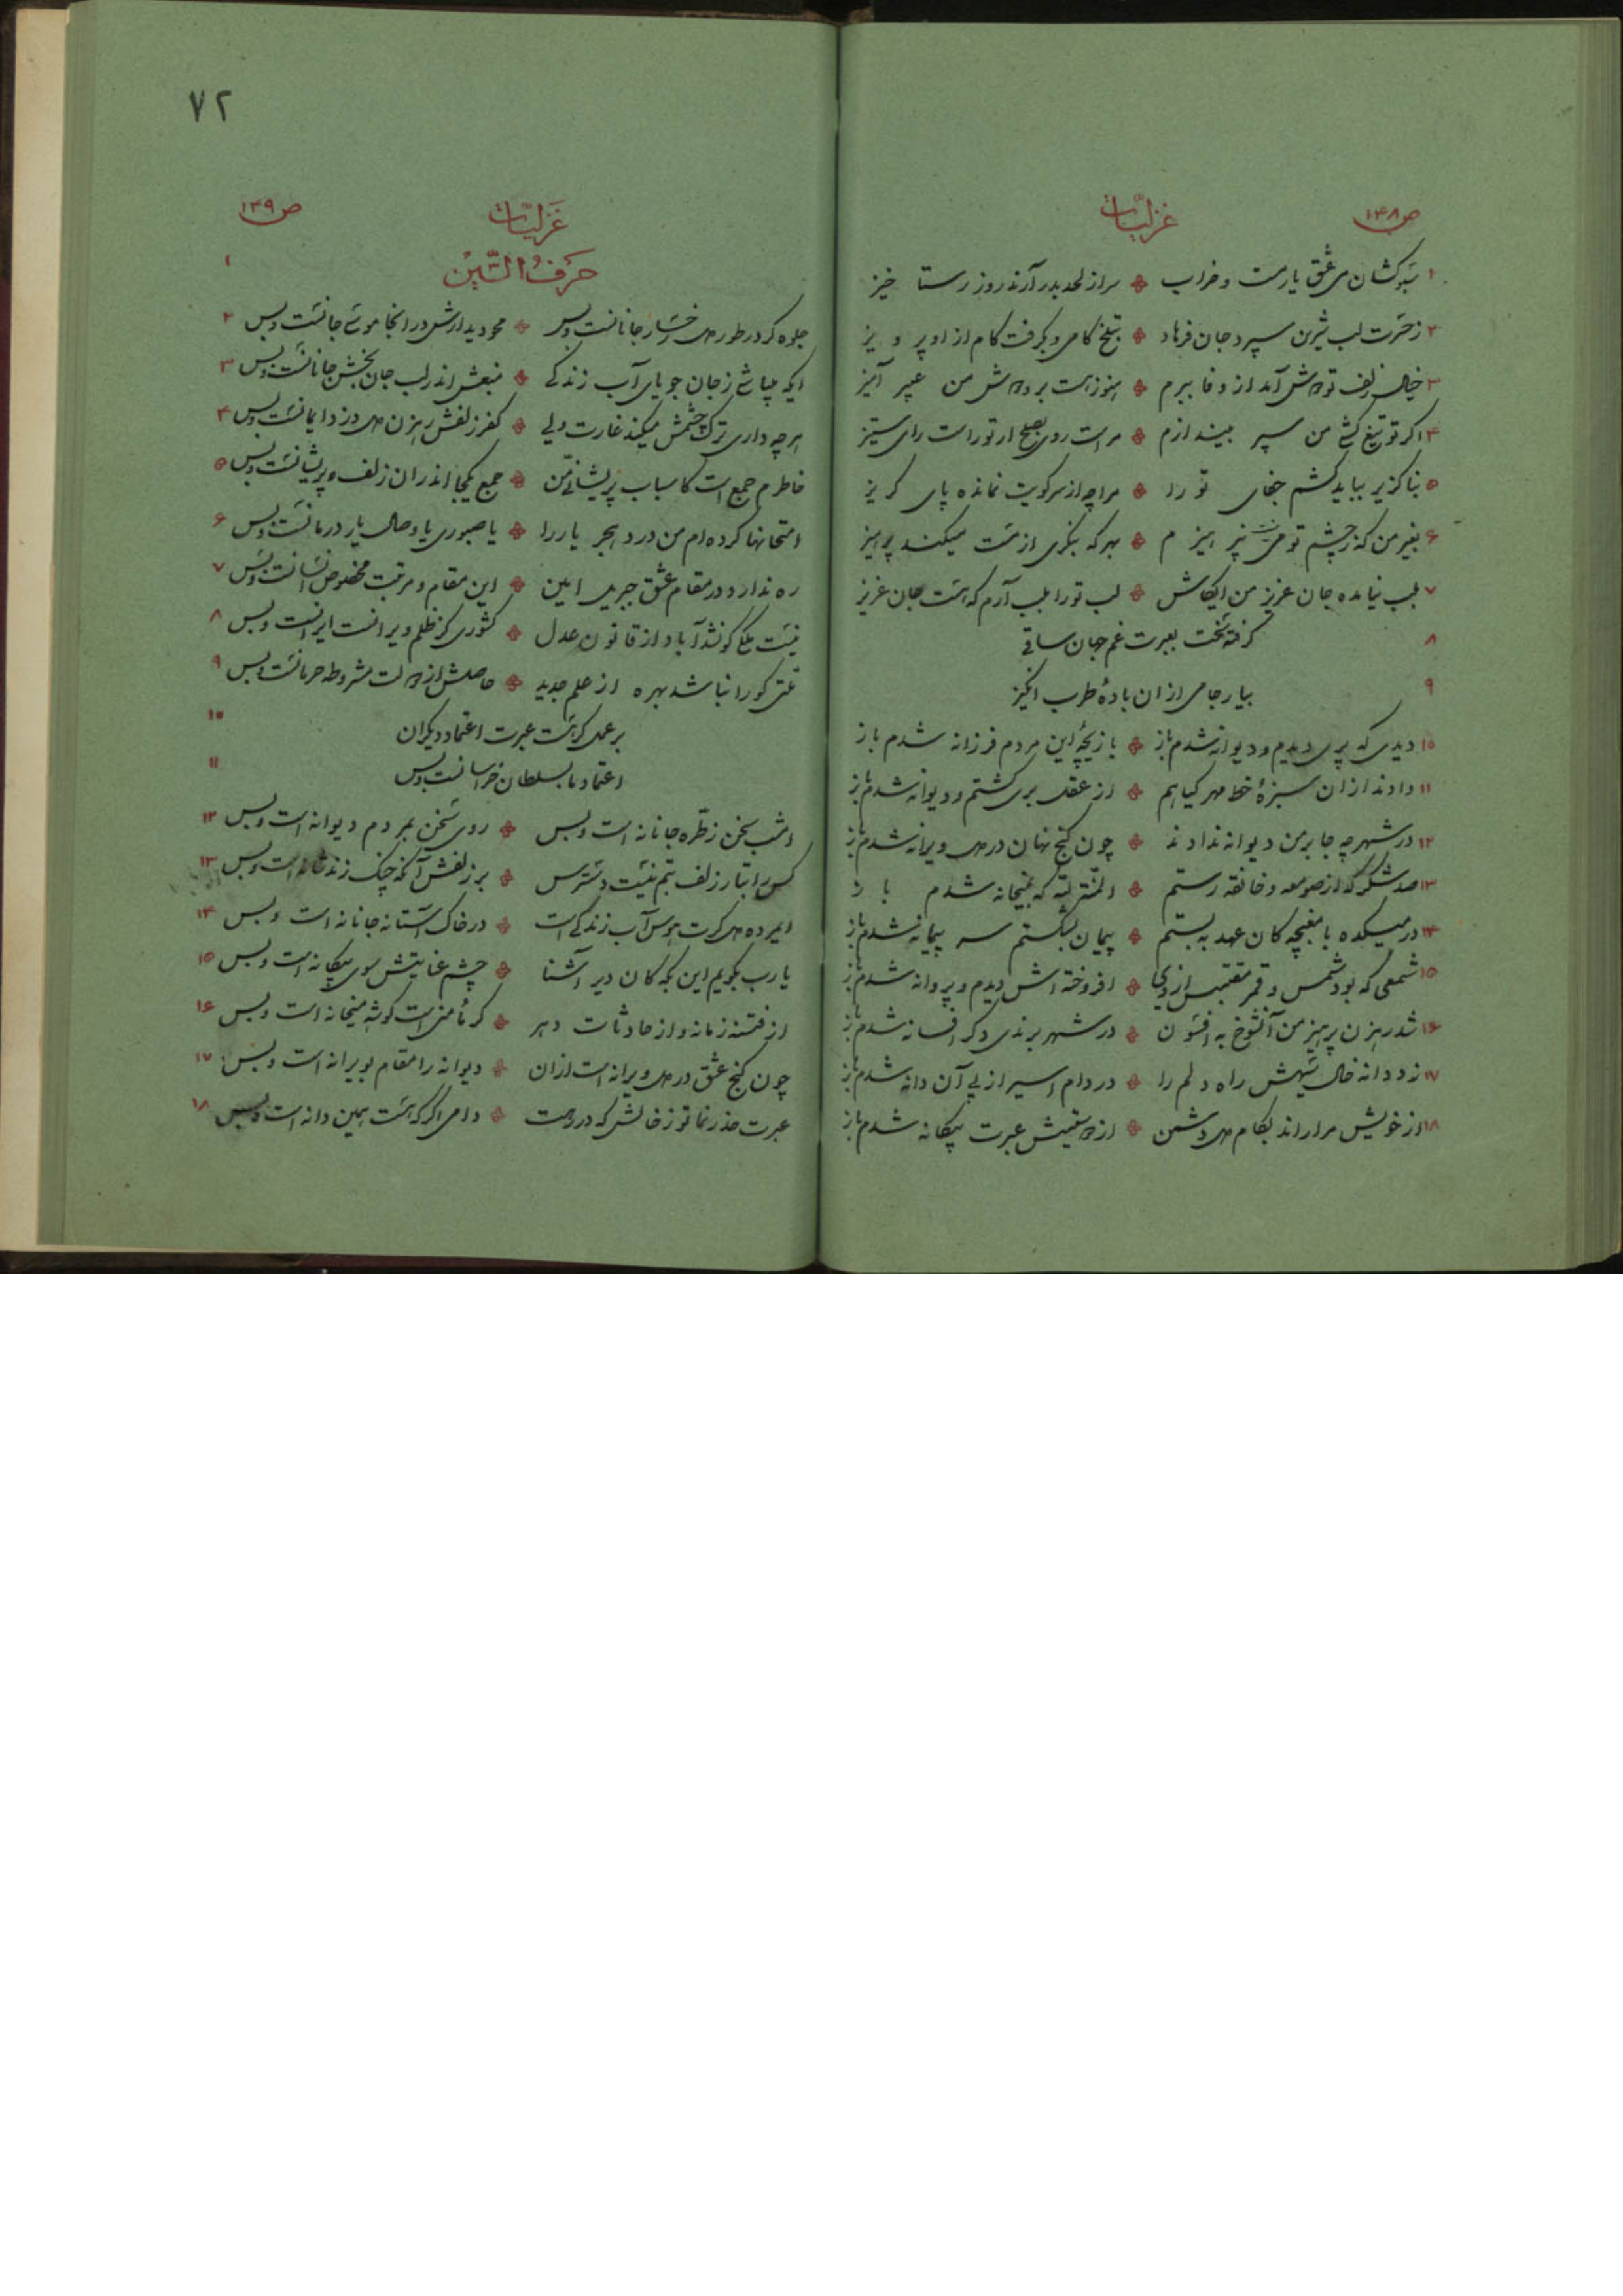 ص۱۴۸
غزلیات
۱ سبوکشان می عشق یار مست و خراب سر از لحد بدر آرند روز رستا خیز
۲ ز حسرت لب شیرین سپرد جان فرهاد بتلخ کامی و بگرفت کام از او پرویز
۳ خیال زلف تو دوش آمد از وفا ببرم هنوز هست بر دوش من عبیر آمیز
۴ اگر تو تیغ کشی من سپر بیندازم مراست روی بصلح ار تو راست رای ستیز
۵ بناگزیر بباید کشم جفای تو را مرا چه از سر کویت نمانده پای گریز
۶ بغیر من که ز چشم تو می نپرهیزم بهر که بنگری از مست میکند پرهیز
۷ بلب نیامده جان عزیز من ایکاش لب تو را بلب آرم که هست جان عزیز
۸ گرفته سخت بعبرت غم جهان ساقی
۹ بیار جامی از ان بادهٔ طرب انگیز
۱۰ دیدی که پری دیدم و دیوانه شدم باز بازیچهٔ این مردم فرزانه شدم باز
۱۱ دادند از ان سبزهٔ خط مهر گیاهم از عقل بری گشتم و دیوانه شدم باز
۱۲ در شهر چه جا بر من دیوانه ندادند چون گنج نهان در دل ویرانه شدم باز
۱۳ صد شکر که از صومعه و خانقه رستم المنة لله که بمیخانه شدم باز
۱۴ در میکده با مغبچه کان عهد به بستم پیمان بشکستم سر پیمانه شدم باز
۱۵ شمعی که بود شمس و قمر مقتبس از وی افروخته اش دیدم و پروانه شدم باز
۱۶ شد رهزن پرهیز من آنشوخ به افسون در شهر برندی دگر افسانه شدم باز
۱۷ زد دانه خال سیهش راه دلم را در دام اسیر از پی آن دانه شدم باز
۱۸ از خویش مرا راند بکام دل دشمن از دوستیش عبرت بیگانه شدم باز
۷۲
ص۱۴۹
غَزلیّات
۱ حَرفُ السّین
جلوه گر در طور دل رخسار جانانست و بس محو دیدارش در انجا موسی جانست و بس ۲
ایکه میباشی ز جان جویای آب زندگی منبعش اندر لب جان بخش جانانست و بس ۳
هر چه داری ترک چشمش میکند غارت ولی کفر زلفش رهزن دل دزد ایمانست و بس ۴
خاطرم جمع است کاسباب پریشانی من جمع یکجا اندران زلف پریشانست و بس ۵
امتحانها کرده ام من درد هجر یار را یا صبوری یا وصال یار درمانست و بس ۶
ره ندارد در مقام عشق جبریل امین این مقام و مرتبت مخصوص انسانست و بس ۷
نیست ملکی کو نشد آباد از قانون عدل کشوری کز ظلم ویرانست ایرانست و بس ۸
ملتی کو را نباشد بهره از علم جدید حاصلش از دولت مشروطه حرمانست و بس ۹
بر عمل گر هست عبرت اعتماد دیگران ۱۰
اعتماد ما بسلطان خراسانست و بس ۱۱
امشب سخن ز طره جانانه است و بس روی سخن بمردم دیوانه است و بس ۱۲
کس را بتار زلف بتم نیست دسترس بر زلفش آنکه چنگ زند شانه است و بس ۱۳
ایمرده دل گرت هوس آب زندگی است در خاک آستانه جانانه است و بس ۱۴
یا رب بگویم این بکه کان دیر آشنا چشم عنایتش سوی بیگانه است و بس ۱۵
از فتنه زمانه و از حادثات دهر گر مأمنی است گوشه میخانه است و بس ۱۶
چون گنج عشق در دل ویرانه است از ان دیوانه را مقام بویرانه است و بس ۱۷
عبرت حذر نما تو ز خالش که در رهت دامی اگر که هست همین دانه است و بس ۱۸